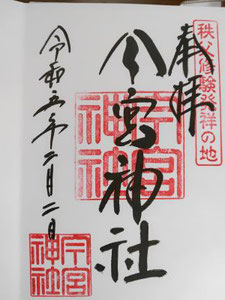 秩父修験発祥の地
奉拝
今宮神社
今宮神社
令和五年二月二日
今宮神社